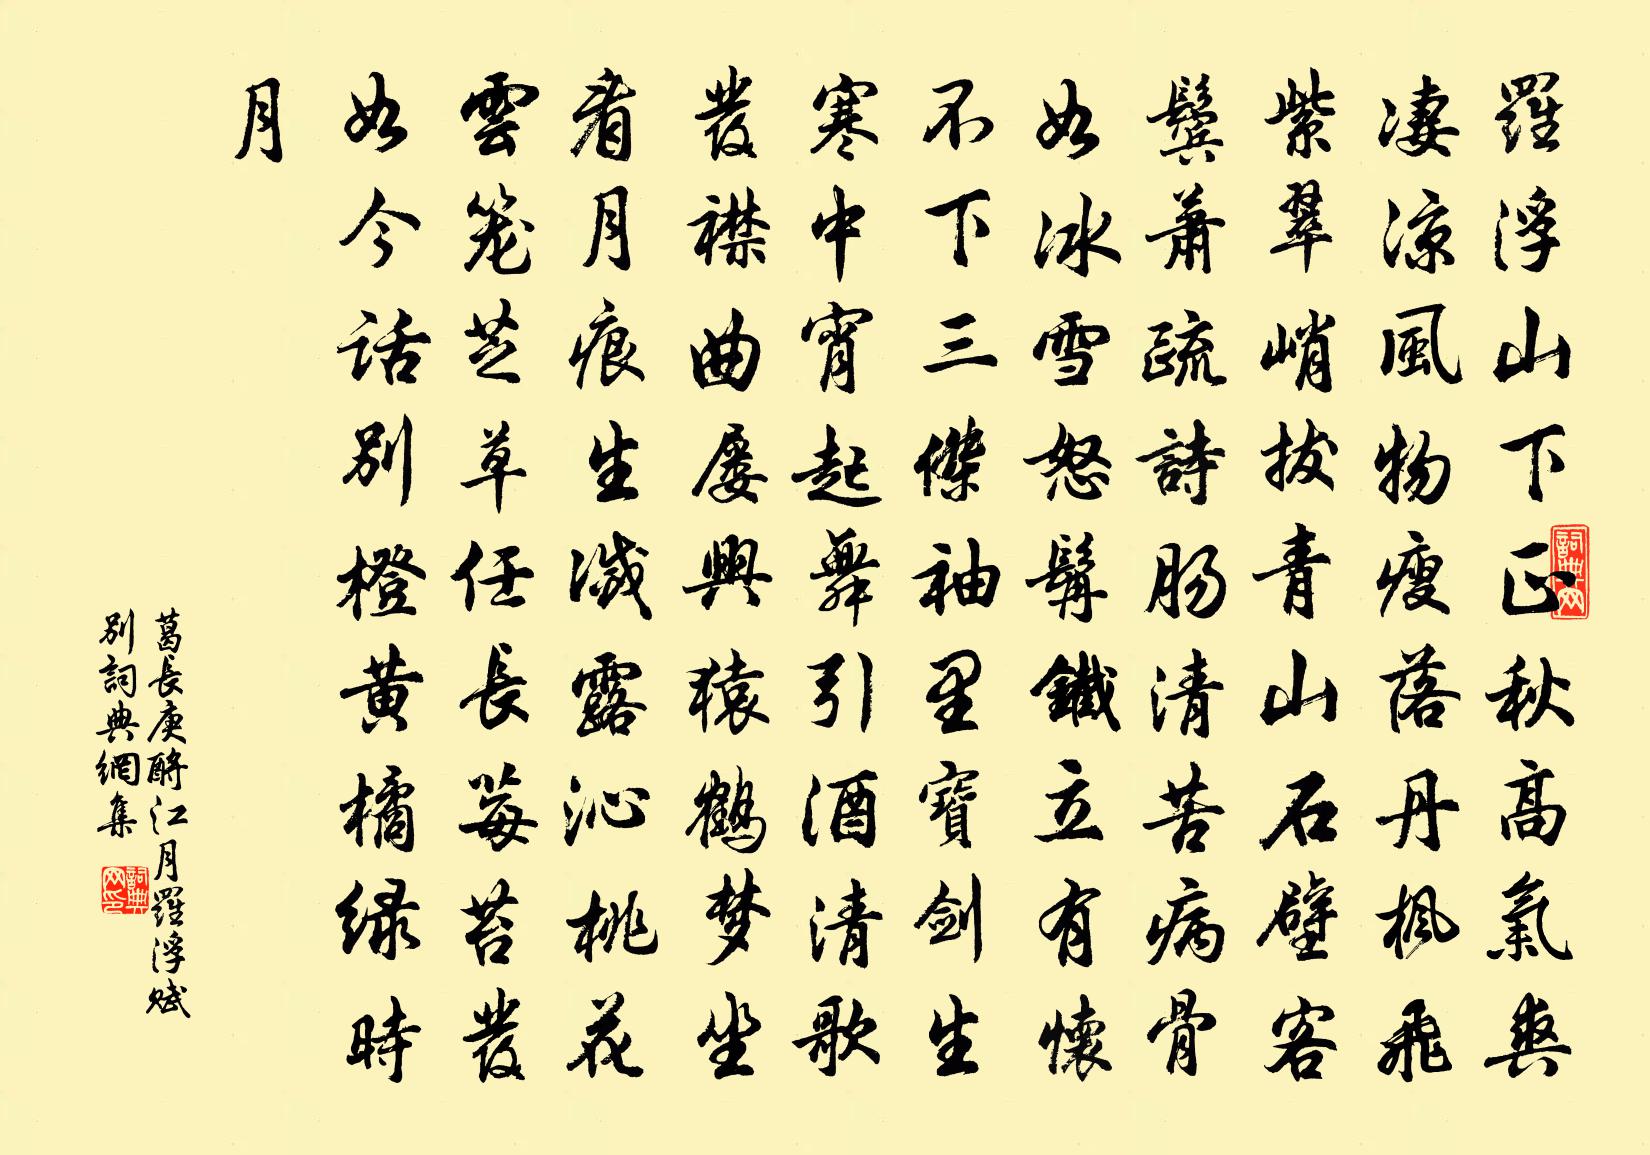 羅浮山下正秋高氣爽
凄涼風物瘦落丹楓飛
紫翠峭拔青山石壁客
鬓蕭疏詩肠清苦病骨
如冰雪怒髯鐵立有懷
不下三傑袖里寶劍生
寒中宵起舞引酒清歌
發襟曲屡興猿鶴梦坐
看月痕生濺露沁桃花
雲笼芝草任長莓苔發
如今話別橙黄橘绿時
月
葛長庚酹江月羅浮賦
別詞典網集
詞典网
詞典网印